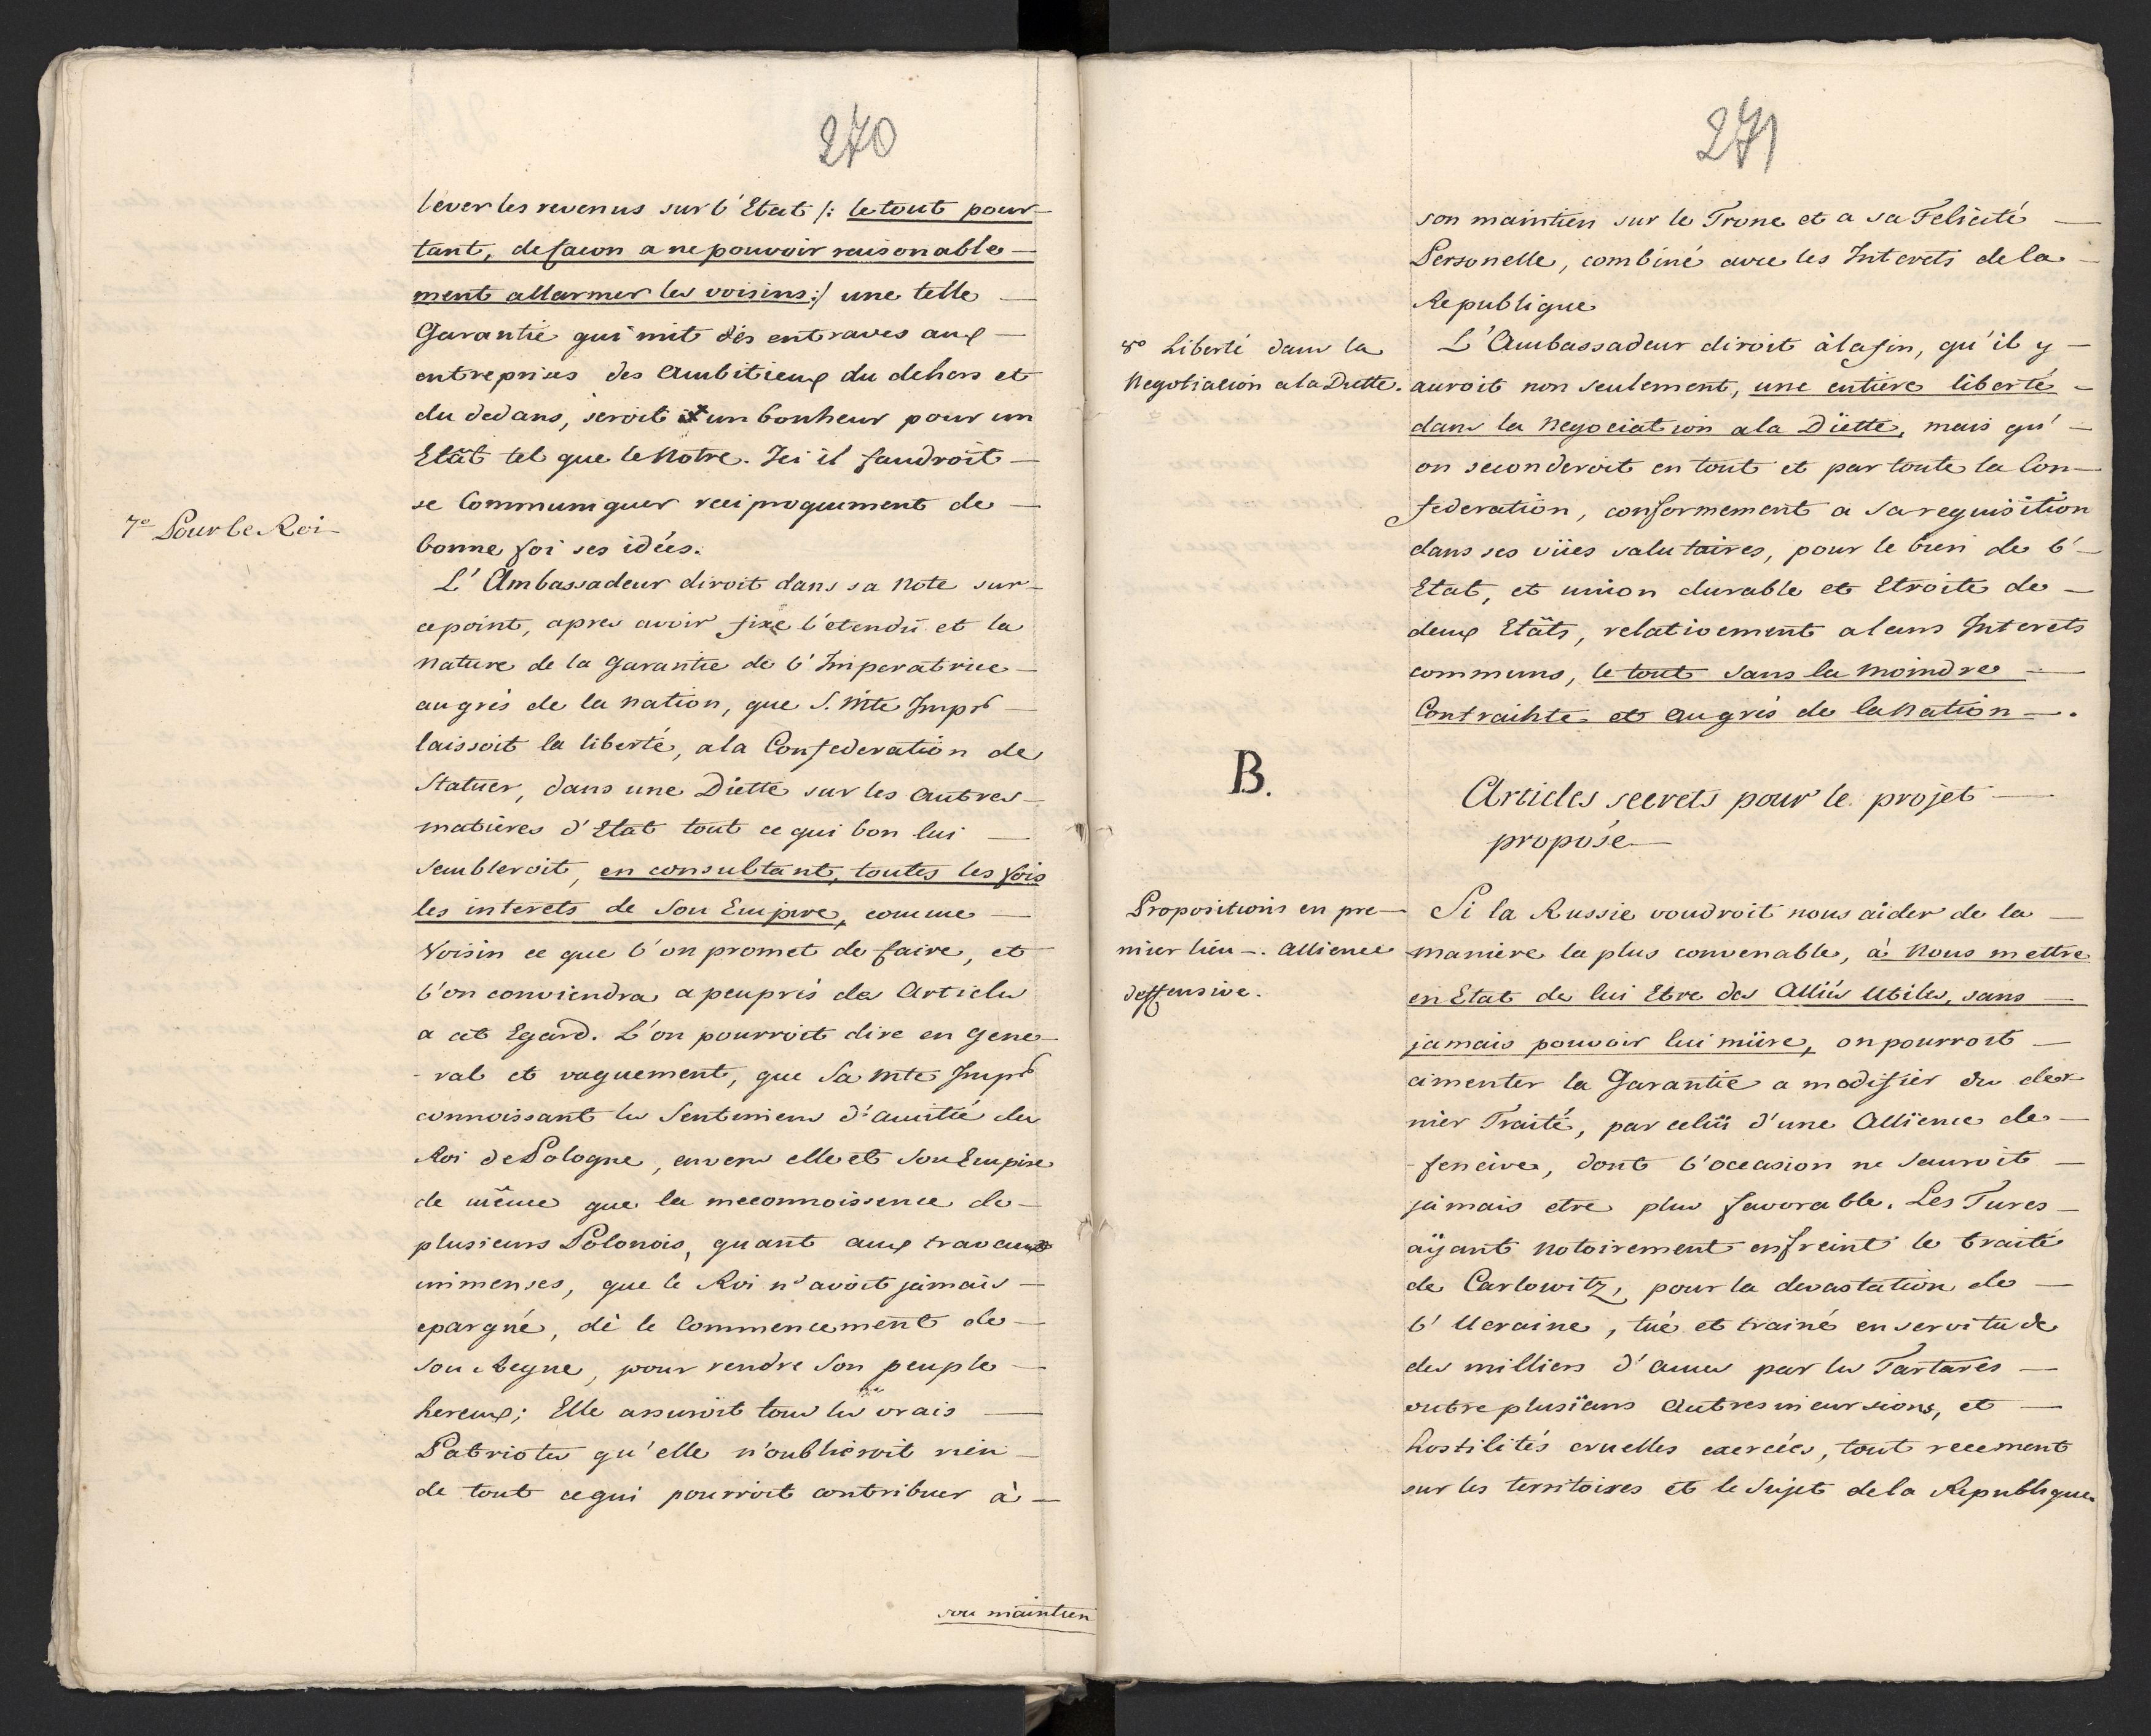 270
lever les revenus sur l'Etat /: le tout pour-
tant, de facon a ne pouvoir raisonable-
ment allarmer les voisins :/ une telle
Garantie qui mit des entraves aux
entreprises des Ambitieux du dehors et
du dedans, seroit un bonheur pour un
Etât tel que le Notre. Ici il faudroit
se Communiquer reciproquement de
7º Pour le Roi
bonne foi ses idées.
L'Ambassadeur diroit dans sa Note sur
ce point, apres avoir fixé l'etendü et la
Nature de la Garantie de l'Imperatrice
au gres de la Nation, que S. Mté Imple
laissoit la liberté, a la Confederation de
Statuer, dans une Diette sur les Autres
matieres d'Etat tout ce qui bon lui
sembleroit, en consultant, toutes les fois
les interets de Son Empire, comme
Voisin ce que l'on promet de faire, et
l'on conviendra a peuprès des Articles
a cet Egard. L'on pourroit dire en Gene-
-ral et vaguement, que Sa Mté Imple
connoissant les Sentimens d'amitié du
Roi de Pologne, envers elle et Son Empire
de même que la meconnoissence de
plusieurs Polonois, quant aux travaux
immenses, que le Roi n'avoit jamais
epargné, dè le Commencement de
son Regne, pour rendre Son peuple
hereux; Elle assuroit tous les vrais
Patriotes qu'elle n'oublieroit rien
de tout ce qui pourroit contribuer à
son maintien
271
son maintien sur le Trone et a sa Felicité
Personelle, combiné avec les Interets de la
Republique
8º Liberté dans la
Negotiacion a la Diette.
L'Ambassadeur diroit à la fin, qu'il y
auroit non seulement, une entiere liberté
dans la Negociation a la Diette, mais qu'
on seconderoit en tout et par toute la Con-
federation, conformement a sa requisition
dans ses vües salutaires, pour le bien de l'
Etat, et union durable et Etroite de
deux Etâts, relativement a leurs Interets
communs, le tout sans la Moindre
Contrainte et au gres de la Nation.
B.
Articles secrets pour le projet
proposé
Propositions en pre-
mier lieu. Allience
deffensive.
Si la Russie voudroit nous aider de la
maniere la plus convenable, à Nous mettre
en Etat de lui Etre des Alliés Utiles, sans
jamais pouvoir lui nüire, on pourroit
cimenter la Garantie a modifier du der-
nier Traité, par celüi d'une Allience de-
-fencive, dont l'occasion ne Sauroit
jamais etre plus favorable. Les Turcs
aÿant Notoirement enfreint le traité
de Carlowitz, pour la devastation de
l'Ucraine, tué et trainé en servitude
des milliers d'ames par les Tartares
outre plusieurs Autres incursions, et
hostilités cruelles exercées, tout recement
sur les territoires et le Sujet de la Republique